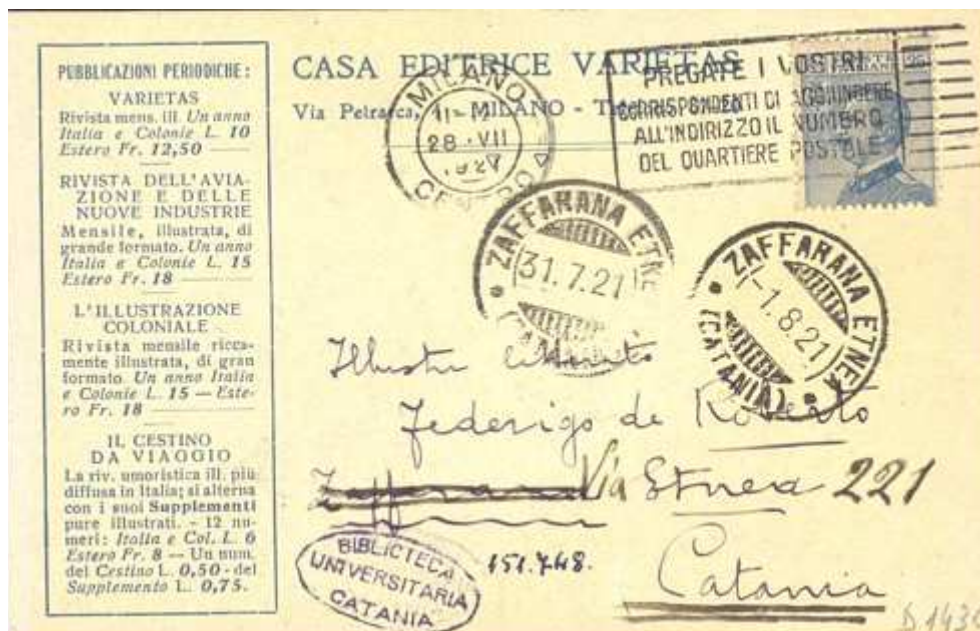 PUBBLICAZIONI PERIODICHE:
VARIETAS
Rivista mens. ill. Un anno
Italia e Colonie L. 10
Estero Fr. 12,50
RIVISTA DELL'AVIA-
ZIONE E DELLE
NUOVE INDUSTRIE
Mensile, illustrata, di
grande formato. Un anno
Italia e Colonie L. 15
Estero Fr. 18
L'ILLUSTRAZIONE
COLONIALE
Rivista mensile ricca-
mente illustrata, di gran
formato Un anno Italia
e Colonie L. 15 — Este-
ro Fr. 18
IL CESTINO
DA VIAGGIO
La riv. umoristica ill. più
diffusa in Italia; si alterna
con i suoi Supplementi
pure illustrati. - 12 nu-
meri: Italia e Col. L. 6
Estero Fr. 8 — Un num.
del Cestino L. 0,50 - del
Supplemento L. 0,75.
CASA EDITRICE VARIETAS
Via Petrarca, MILANO -
MILANO
28 · VII
PREGATE I VOSTRI
CORRISPONDENTI DI AGGIUNGERE
ALL'INDIRIZZO IL NUMERO
DEL QUARTIERE POSTALE
ZAFFARANA ETNE
31.7.21
ZAFFARANA ETNEA
-1.8.21
(CATANIA)
Federigo de Roberto
Via Etnea 221
Catania
BIBLIOTECA
UNIVERSITARIA
CATANIA
151.748.